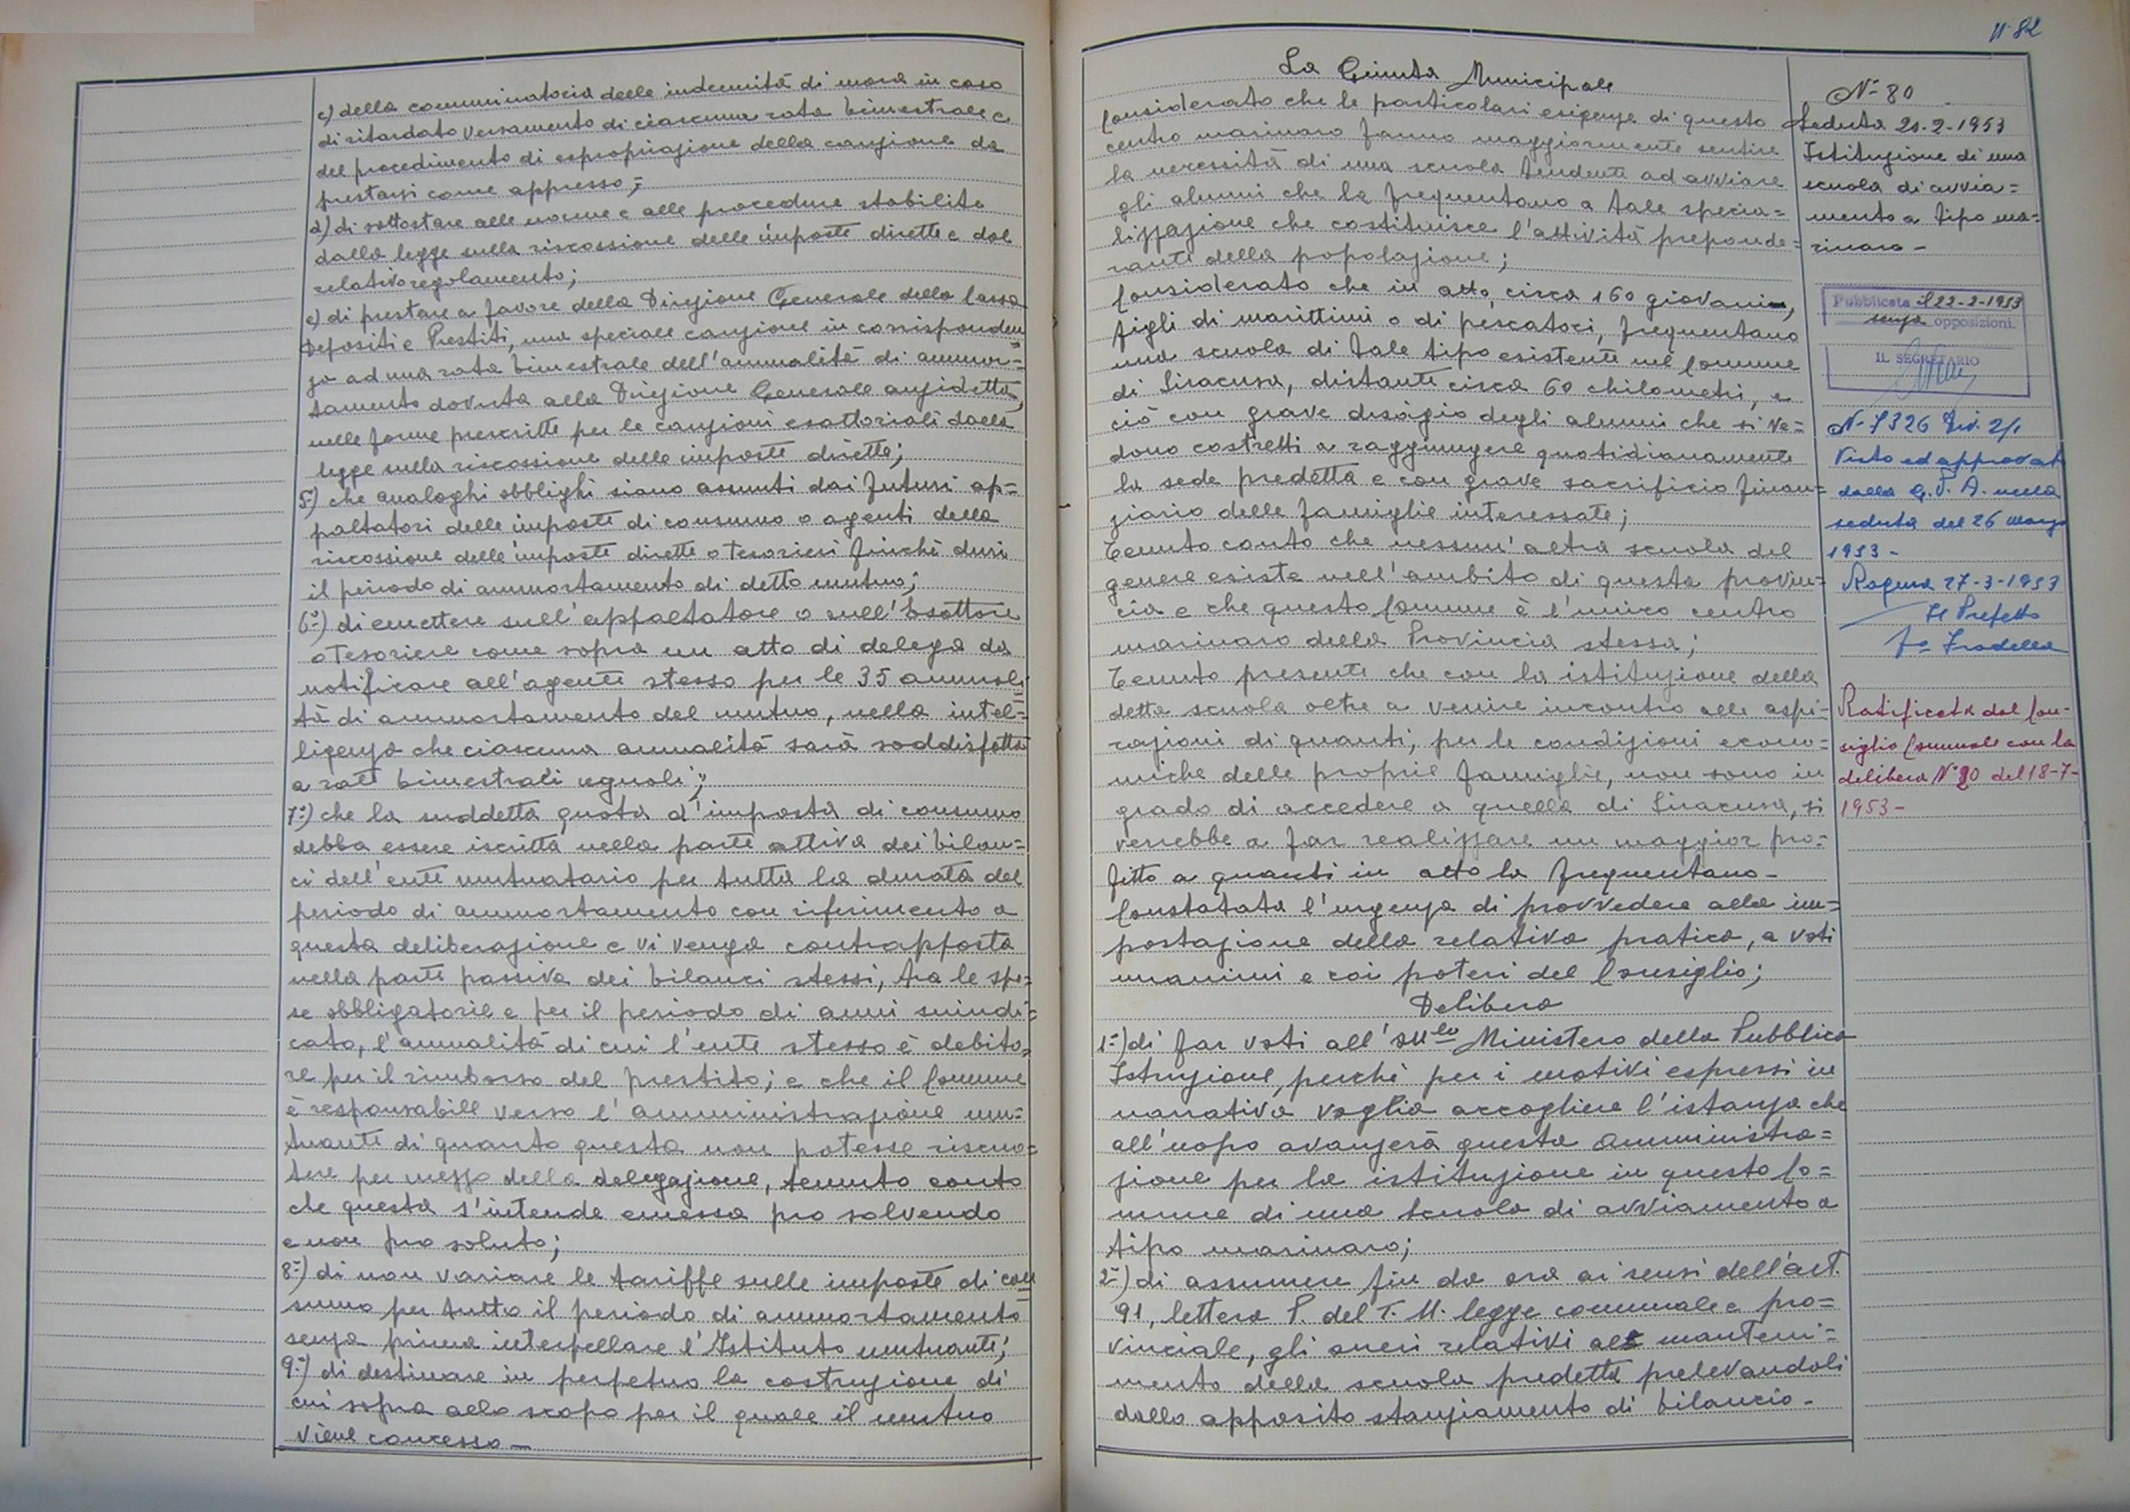 c) della comminatoria delle indennità di mora in caso
di ritardato versamento di ciascuna rata bimestrale e
del procedimento di espropriazione della cauzione da
prestarsi come appresso;=
d) di sottostare alle norme e alle procedure stabilite
dalla legge sulla riscossione delle imposte dirette e dal
relativo regolamento;
e) di prestare a favore della Direzione Generale della Cassa
Depositi e Prestiti, una speciale cauzione in corrisponden
za ad una rata bimestrale dell'annualità di ammor=
tamento dovuta alla Direzione Generale anzidetta,
nelle forme prescritte per le cauzioni esattoriali dalla
legge sulla riscossione delle imposte dirette;
5°) che analoghi obblighi siano assunti dai futuri ap=
paltatori delle imposte di consumo o agenti della
riscossione delle imposte dirette o Tesorieri finchè duri
il periodo di ammortamento di detto mutuo;
6°) di emettere sull'appaltatore o sull'Esattore
o Tesoriere come sopra un atto di delega da
notificare all'agente stesso per le 35 annuali
tà di ammortamento del mutuo, nella intel=
ligenza che ciascuna annualità sarà soddisfatta
a rate bimestrali uguali;
7°) che la suddetta quota d'imposta di consumo
debba essere iscritta nella parte attiva dei bilan=
ci dell'ente mutuatario per tutta la durata del
periodo di ammortamento con riferimento a
questa deliberazione e vi venga contrapposta
nella parte passiva dei bilanci stessi, tra le spe=
se obbligatorie e per il periodo di anni suindi=
cato, l'annualità di cui l'ente stesso è debito=
re per il rimborso del prestito; e che il Comune
è responsabile verso l'amministrazione mu=
tuante di quanto questa non potesse riscuo=
tere per mezzo della delegazione, tenuto conto
che questa s'intende emessa pro solvendo
e non pro soluto;
8°) di non variare le tariffe sulle imposte di con
sumo per tutto il periodo di ammortamento
senza prima interpellare l'Istituto mutuante;
9°) di destinare in perpetuo la costruzione di
cui sopra allo scopo per il quale il mutuo
viene concesso -
11-82
La Giunta Municipale
Considerato che le particolari esigenze di questo
centro marinaro fanno maggiormente sentire
la necessità di una scuola tendente ad avviare
gli alunni che la frequentano a tale specia=
lizzazione che costituisce l'attività preponde=
rante della popolazione;
Considerato che in atto, circa 160 giovani,
figli di marittimi o di pescatori, frequentano
una scuola di tale tipo esistente nel Comune
di Siracusa, distante circa 60 chilometri, e
ciò con grave disagio degli alunni che si ve=
dono costretti a raggiungere quotidianamente
la sede predetta e con grave sacrificio finan=
ziario delle famiglie interessate;
Tenuto conto che nessun'altra scuola del
genere esiste nell'ambito di questa provin=
cia e che questo Comune è l'unico centro
marinaro della Provincia stessa;
Tenuto presente che con la istituzione della
detta scuola oltre a venire incontro alle aspi=
razioni di quanti, per le condizioni econo=
miche delle proprie famiglie, non sono in
grado di accedere a quella di Siracusa, si
verrebbe a far realizzare un maggior pro=
fitto a quanti in atto la frequentano -
Constatata l'urgenza di provvedere alla im=
postazione della relativa pratica, a voti
unanimi e coi poteri del Consiglio;
Delibera
1°) di far voti all'On.le Ministero della Pubblica
Istruzione, perchè per i motivi espressi in
narrativa voglia accogliere l'istanza che
all'uopo avanzerà questa amministra=
zione per la istituzione in questo Co=
mune di una scuola di avviamento a
tipo marinaro;
2°) di assumere fin da ora ai sensi dell'art.
91, lettera P. del T. U. legge comunale e pro=
vinciale, gli oneri relativi al manteni=
mento della scuola predetta prelevandoli
dallo apposito stanziamento di bilancio -
N° 80
Seduta 20-2-1953
Istituzione di una
scuola di avvia=
mento a tipo ma=
rinaro -
Pubblicata il 22-2-1953
senza opposizioni.
IL SEGRETARIO
N° 9326 Div. 2/1
Visto ed approvato
dalla G. P. A. nella
seduta del 26 marzo
1953 -
Ragusa 27-3-1953
Il Prefetto
Ratificata dal Con=
siglio Comunale con la
delibera N° 80 del 18-7-
1953 -